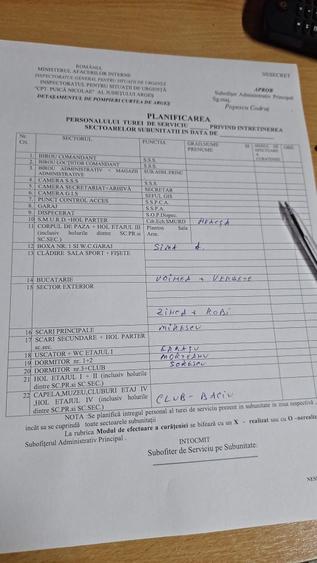 ROMÂNIA
MINISTERUL AFACERILOR INTERNE
INSPECTORATUL GENERAL PENTRU SITUAȚII DE URGENȚĂ
INSPECTORATUL PENTRU SITUAȚII DE URGENȚĂ
"CPT. PUICĂ NICOLAE" AL JUDEȚULUI ARGEȘ
DETAȘAMENTUL DE POMPIERI CURTEA DE ARGEȘ
NESECRET
APROB
Subofițer Administrativ Principal
Sg.maj.
Popescu Codruț
PLANIFICAREA
PERSONALULUI TUREI DE SERVICIU PRIVIND INTREȚINEREA
SECTOARELOR SUBUNITATII IN DATA DE
Nr. Crt. SECTORUL FUNCȚIA GRAD,NUME SI PRENUME MODUL DE EFECTUARE A CURĂȚENIEI OBS.
1 BIROU COMANDANT S.S.S.
2 BIROU LOCȚIITOR COMANDANT S.S.S.
3 BIROU ADMINISTRATIV + MAGAZII ADMINISTRATIVE SUB.ADM. PRINC
4 CAMERA S.S.S. S.S.S.
5 CAMERA SECRETARIAT+ARHIVĂ SECRETAR
6 CAMERA G.I.S ȘEFUL GIS
7 PUNCT CONTROL ACCES S.S.P.C.A.
8 GARAJ S.S.P.A.
9 DISPECERAT S.O.P.Dispec.
10 S.M.U.R.D +HOL PARTER Cdt.Ech.SMURD NEACȘA
11 CORPUL DE PAZA + HOL ETAJUL III Planton Sala
(inclusiv holurile dintre SC.PR.si Arm.
SC.SEC.)
12 BOXA NR. 1 SI W.C.GARAJ SIMA
13 CLĂDIRE SALA SPORT + FIȘETE
14 BUCATARIE VOINEA +
15 SECTOR EXTERIOR
ZINCA + ROBI
16 SCARI PRINCIPALE MIRESCU
17 SCARI SECUNDARE + HOL PARTER
sc.sec.
18 USCATOR + WC ETAJUL I
19 DORMITOR nr. 1+2
20 DORMITOR nr.3+CLUB
21 HOL ETAJUL I + II (inclusiv holurile
dintre SC.PR.si SC.SEC.)
22 CAPELA,MUZEU,CLUBURI ETAJ IV CLUB - BACIU
,HOL ETAJUL IV (inclusiv holurile
dintre SC.PR.si SC.SEC.)
NOTA :Se planifică intregul personal al turei de serviciu prezent in subunitate in ziua respectivă
incât sa se cuprindă toate sectoarele subunității
La rubrica Modul de efectuare a curățeniei se bifează cu un X - realizat sau cu O -nerealizat
Subofițerul Administrativ Principal .
INTOCMIT
Subofiter de Serviciu pe Subunitate.